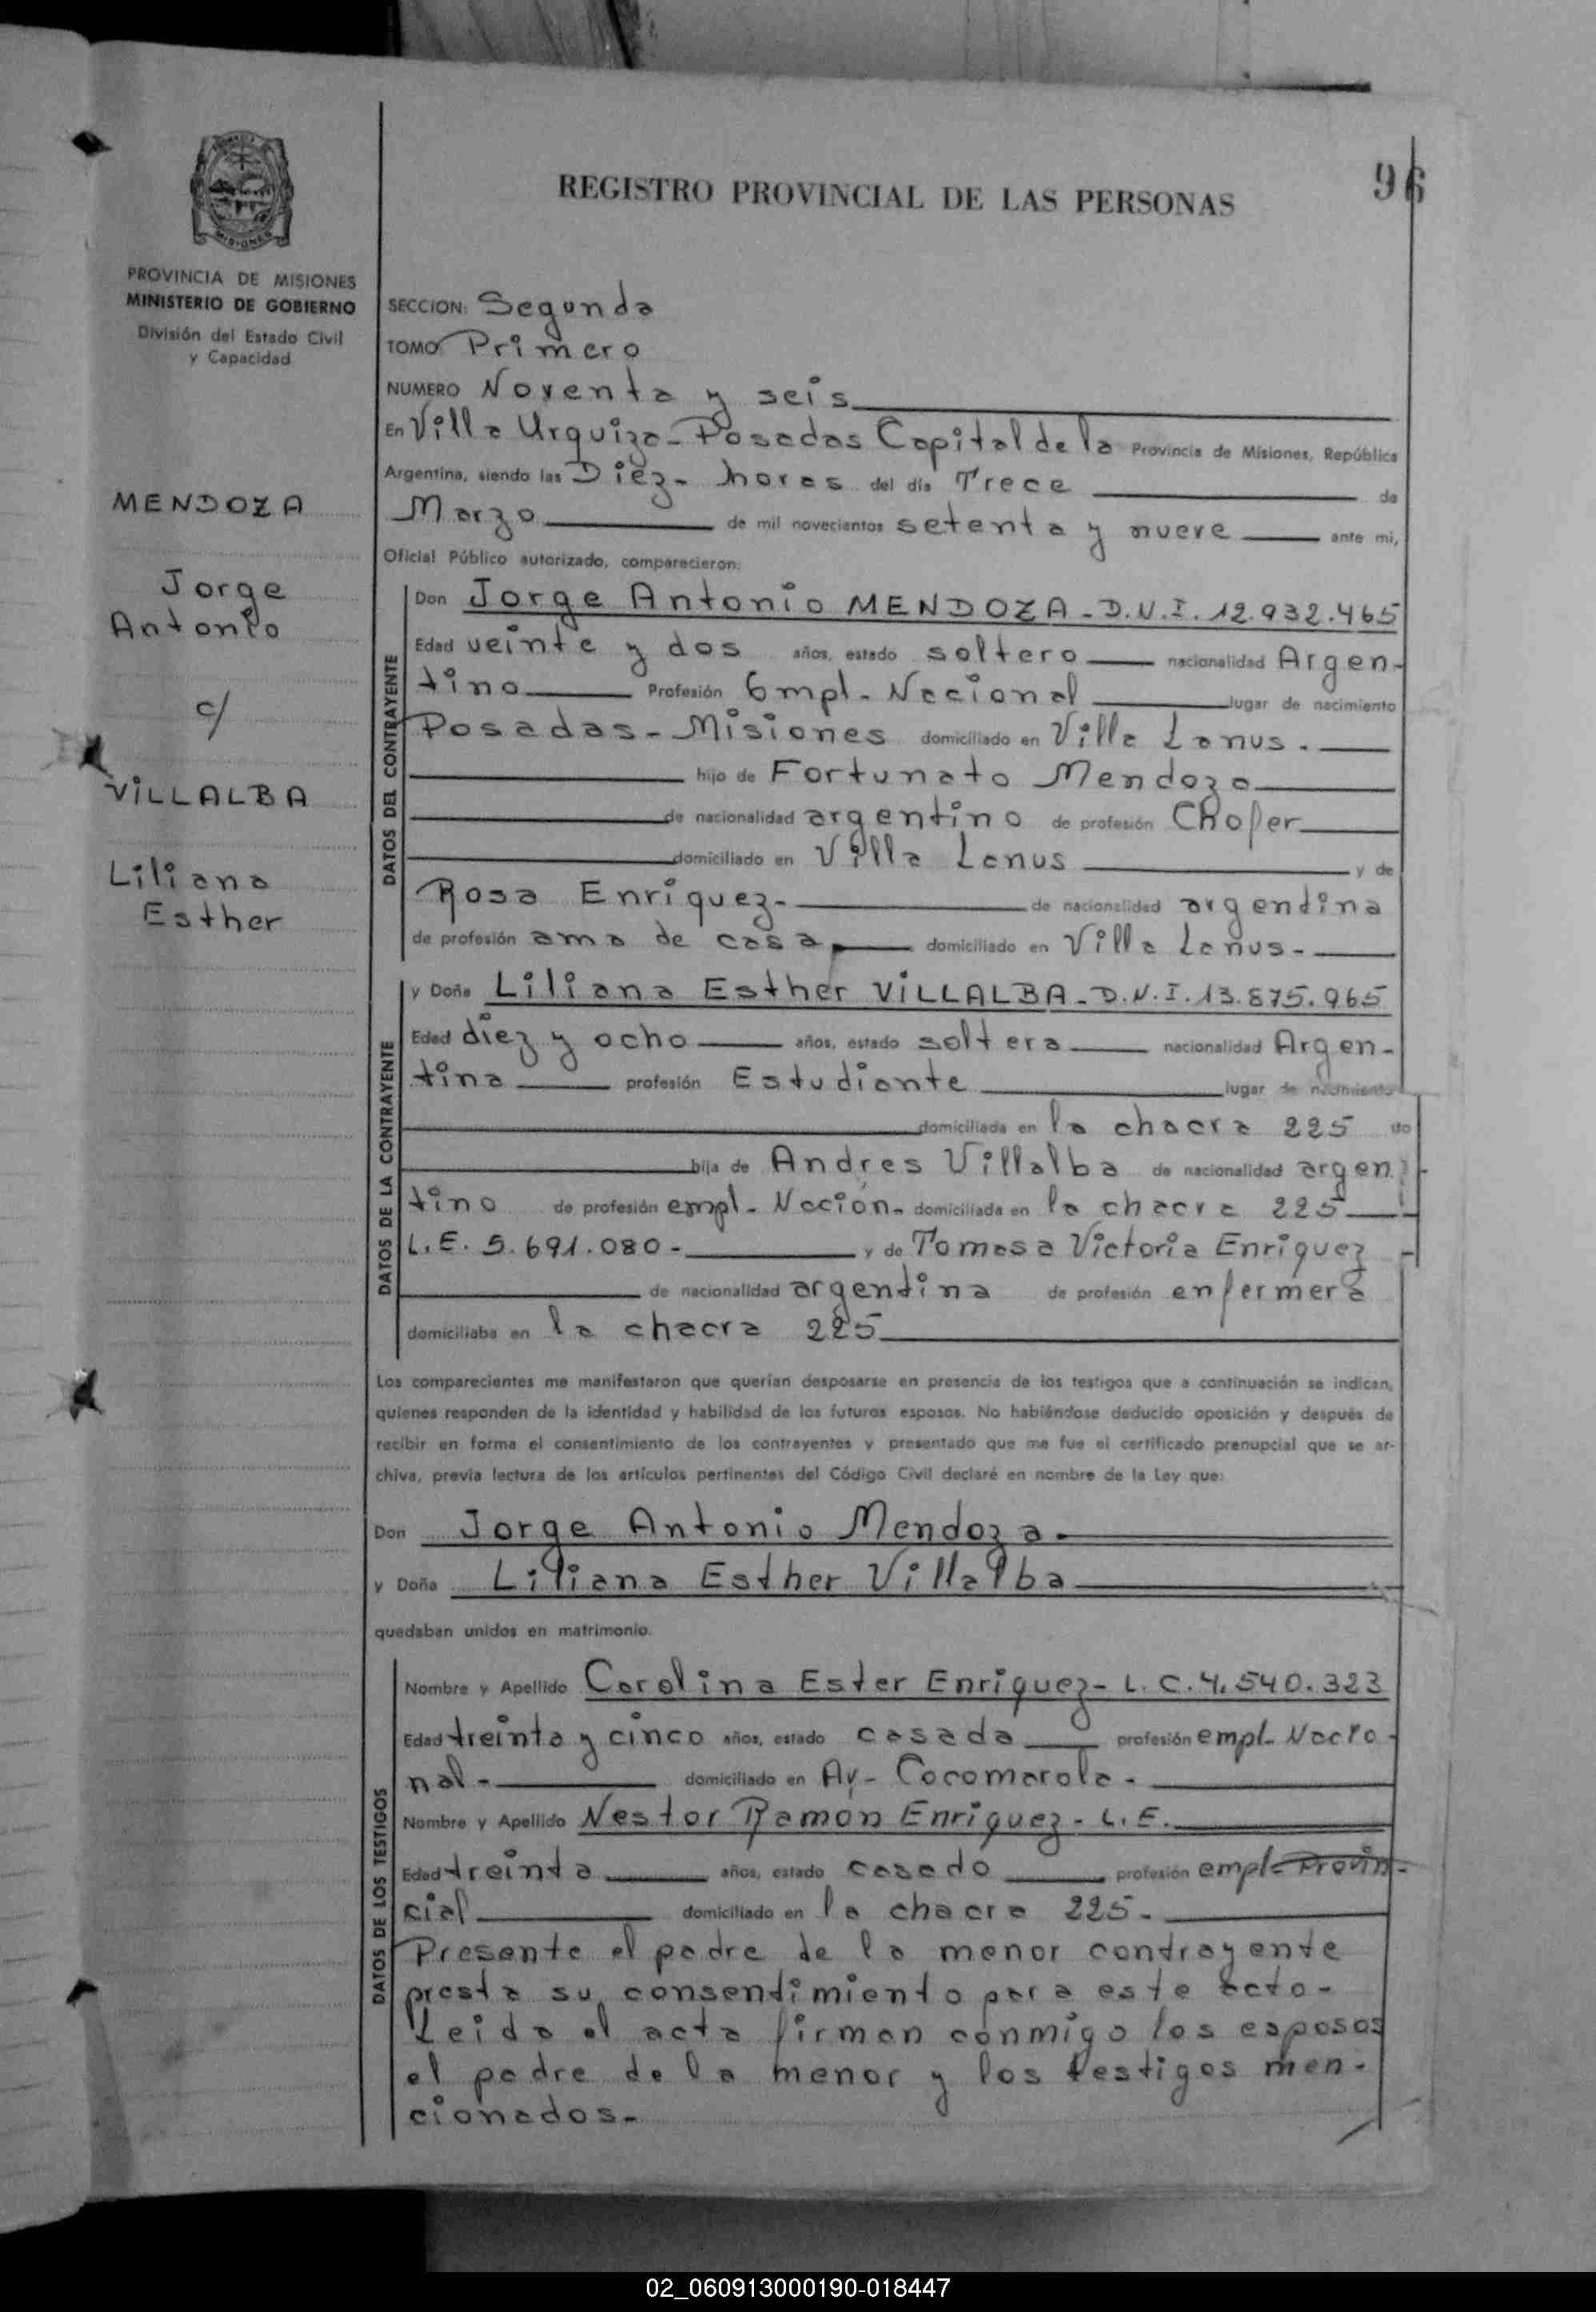 96
REGISTRO PROVINCIAL DE LAS PERSONAS
MISIONES
PROVINCIA DE MISIONES
MINISTERIO DE GOBIERNO
División del Estado Civil
y Capacidad
MENDOZA
Jorge
Antonio
c/
VILLALBA
Liliana
Esther
SECCION: Segunda
TOMO Primero
NUMERO Noventa y seis
En Villa Urquiza - Posadas Capital de la Provincia de Misiones, República
Argentina, siendo las Diez - horas del día Trece de
Marzo de mil novecientos setenta y nueve ante mi,
Oficial Público autorizado, comparecieron:
DATOS DEL CONTRAYENTE
Don Jorge Antonio MENDOZA - D.N.I. 12.932.465
Edad veinte y dos años, estado soltero nacionalidad Argen-
tino Profesión Empl - Nacional lugar de nacimiento
Posadas - Misiones domiciliado en Villa Lanus.
hijo de Fortunato Mendoza
de nacionalidad argentino de profesión Chofer
domiciliado en Villa Lanus y de
Rosa Enriquez - de nacionalidad argentina
de profesión ama de casa domiciliado en Villa Lanus -
DATOS DE LA CONTRAYENTE
y Doña Liliana Esther VILLALBA - D.N.I. 13.875.965
Edad diez y ocho años, estado soltera nacionalidad Argen-
tina profesión Estudiante lugar de nacimiento
domiciliada en la chacra 225
hija de Andres Villalba de nacionalidad argen
tino de profesión empl - Nación - domiciliada en la chacra 225
L.E. 5.691.080 - y de Tomasa Victoria Enriquez
de nacionalidad argentina de profesión enfermera
domiciliaba en la chacra 225
Los comparecientes me manifestaron que querían desposarse en presencia de los testigos que a continuación se indican,
quienes responden de la identidad y habilidad de los futuros esposos. No habiéndose deducido oposición y después de
recibir en forma el consentimiento de los contrayentes y presentado que me fue el certificado prenupcial que se ar-
chiva, previa lectura de los artículos pertinentes del Código Civil declaré en nombre de la Ley que:
Don Jorge Antonio Mendoza -
y Doña Liliana Esther Villalba
quedaban unidos en matrimonio.
DATOS DE LOS TESTIGOS
Nombre y Apellido Carolina Ester Enriquez - L.C. 4.540.323
Edad treinta y cinco años, estado casada profesión empl - Nacio -
nal - domiciliado en Av - Cocomarola -
Nombre y Apellido Nestor Ramón Enriquez - L.E.
Edad treinta años, estado casado profesión empl - Provin -
cial domiciliado en la chacra 225 -
Presente el padre de la menor contrayente
presta su consentimiento para este acto -
Leida el acta firman conmigo los esposos
el padre de la menor y los testigos men -
cionados -
02_060913000190-018447